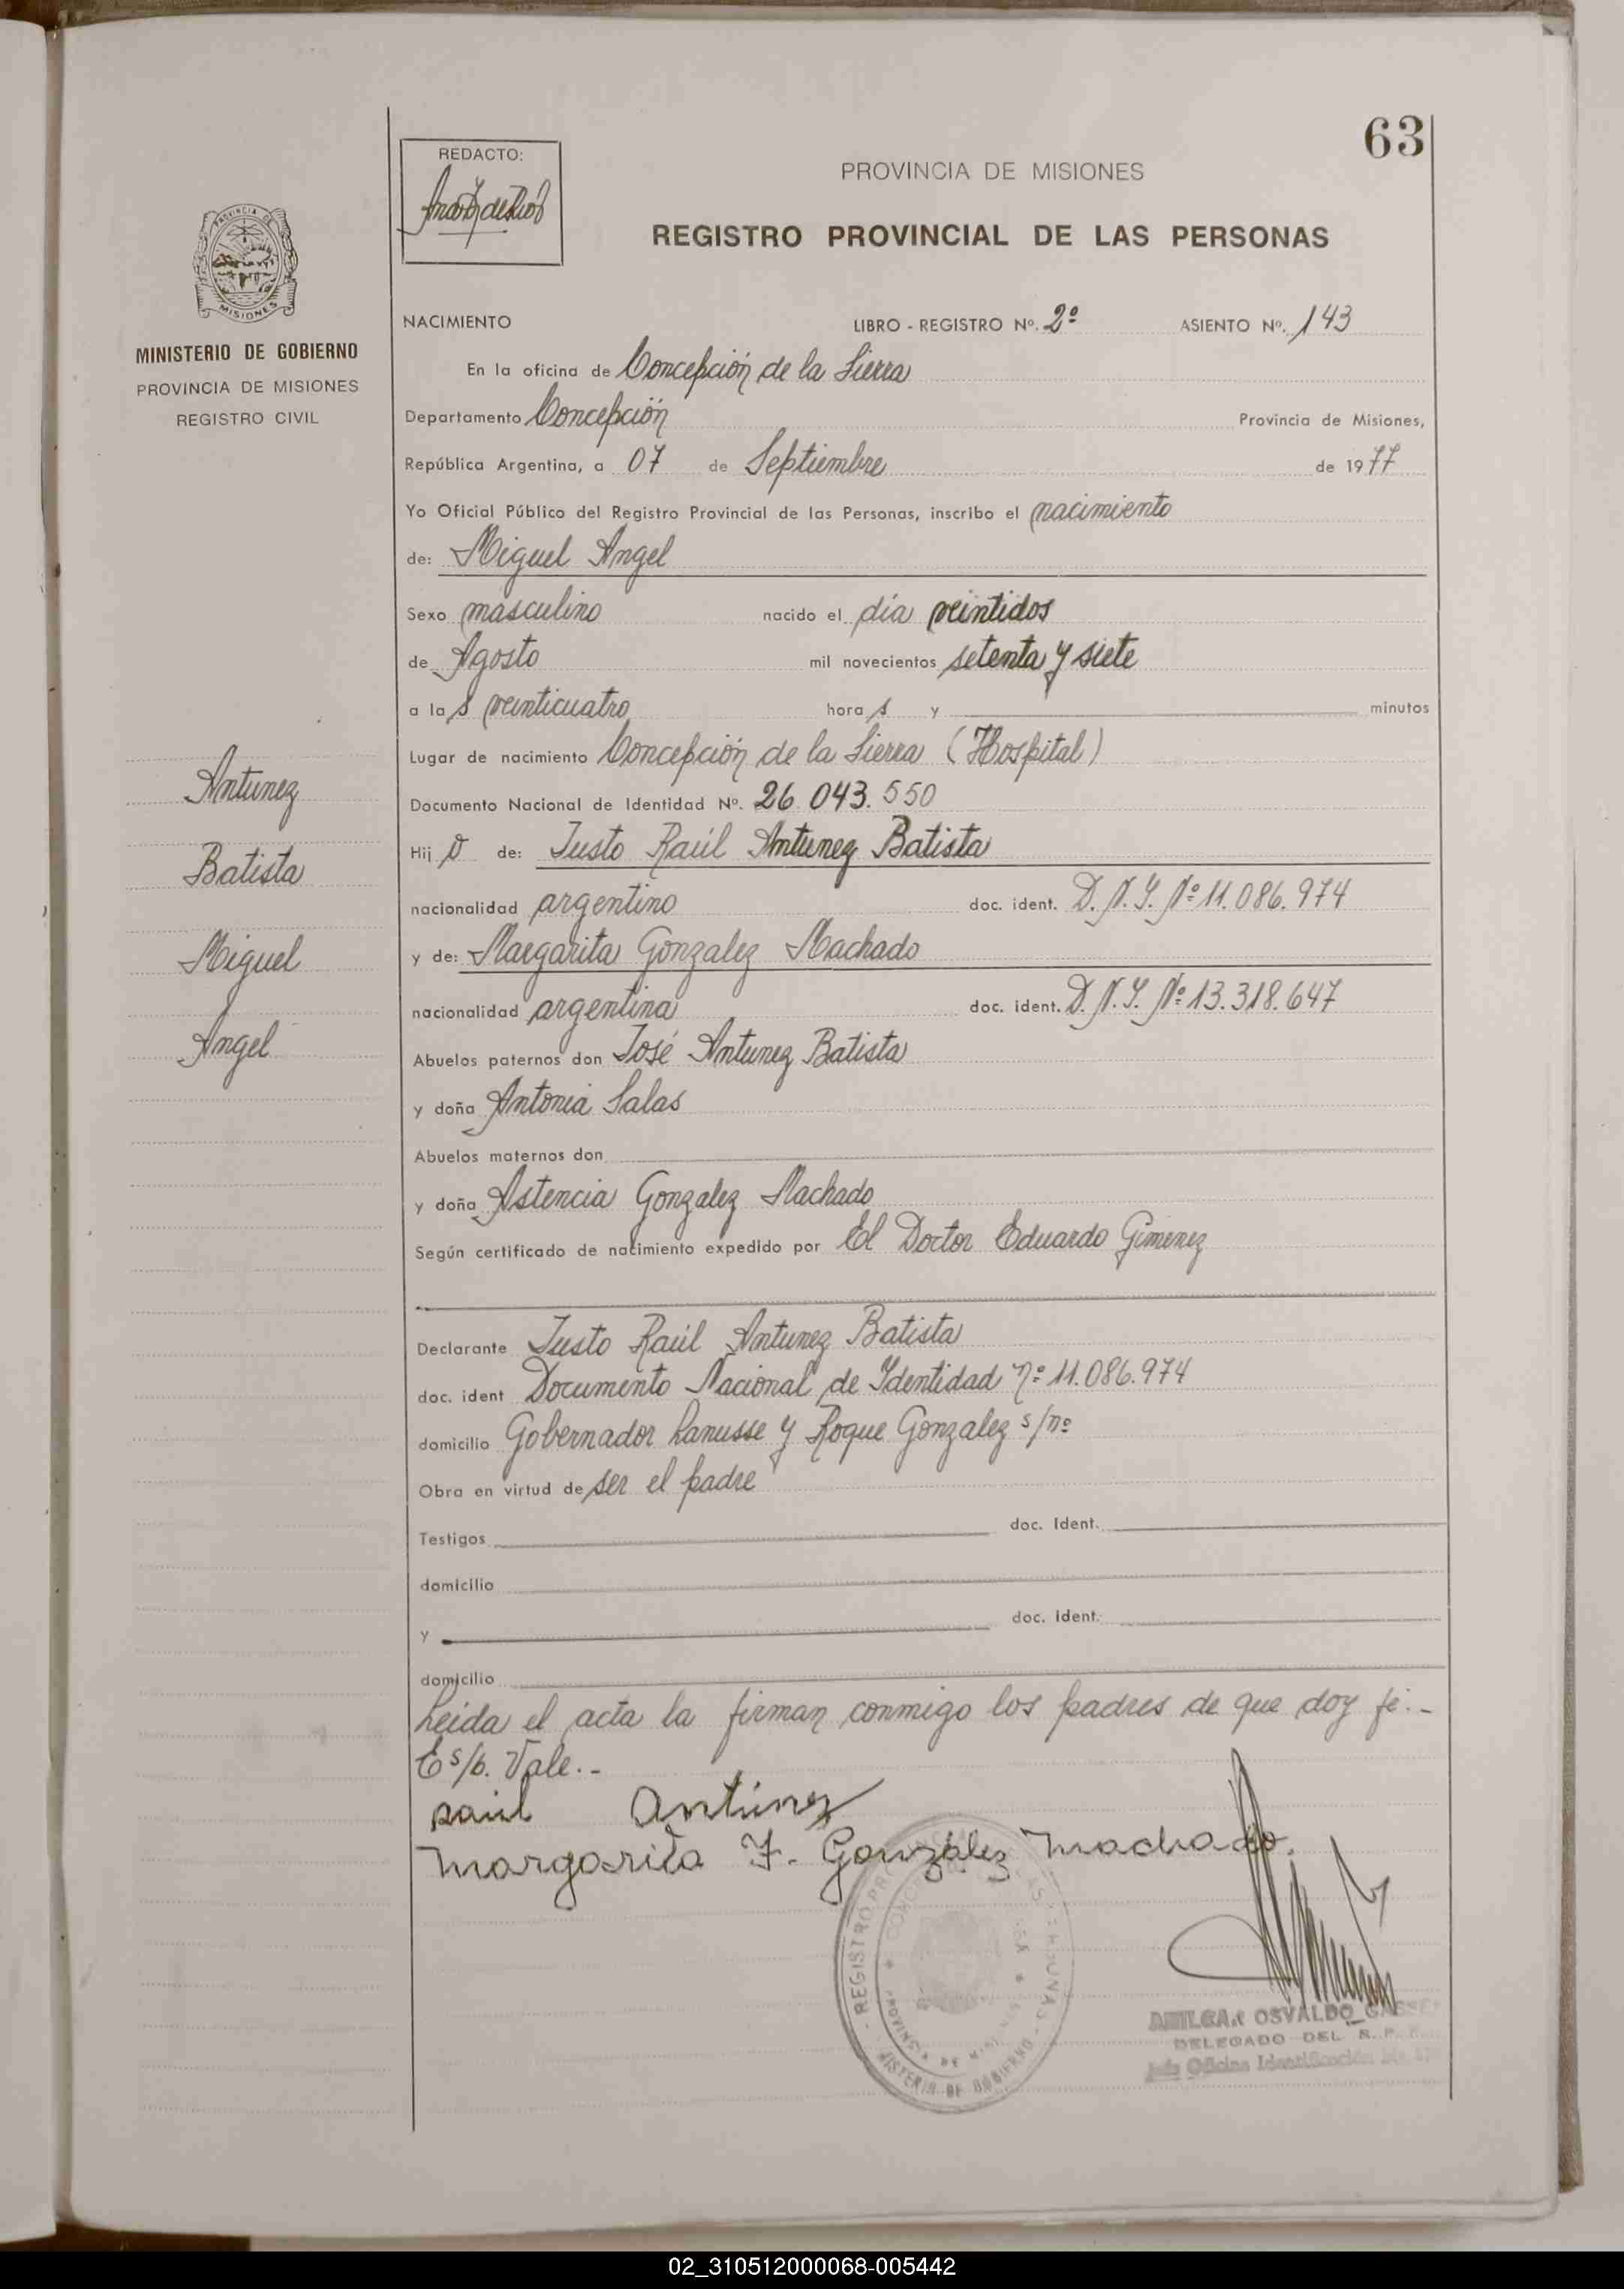 63
REDACTO:
PROVINCIA DE MISIONES
REGISTRO PROVINCIAL DE LAS PERSONAS
PROVINCIA DE
MISIONES
MINISTERIO DE GOBIERNO
PROVINCIA DE MISIONES
REGISTRO CIVIL
NACIMIENTO LIBRO - REGISTRO Nº. 2º ASIENTO Nº. 143
En la oficina de Concepción de la Sierra
Departamento Concepción Provincia de Misiones,
República Argentina, a 07 de Septiembre de 1977
Yo Oficial Público del Registro Provincial de las Personas, inscribo el nacimiento
de: Miguel Angel
Sexo masculino nacido el día veintidos
de Agosto mil novecientos setenta y siete
a las veinticuatro horas y minutos
Lugar de nacimiento Concepción de la Sierra (Hospital)
Documento Nacional de Identidad Nº. 26.043.550
Hijo de: Justo Raúl Antunez Batista
nacionalidad argentino doc. ident. D.N.I. Nº 11.086.974
y de: Margarita Gonzalez Machado
nacionalidad argentina doc. ident. D.N.I. Nº 13.318.647
Abuelos paternos don José Antunez Batista
y doña Antonia Salas
Abuelos maternos don
y doña Astencia Gonzalez Machado
Según certificado de nacimiento expedido por El Doctor Eduardo Gimenez
Declarante Justo Raúl Antunez Batista
doc. ident Documento Nacional de Identidad Nº 11.086.974
domicilio Gobernador Lanusse y Roque Gonzalez s/nº
Obra en virtud de ser el padre
Testigos doc. Ident.
domicilio
y doc. ident.
domicilio
Leida el acta la firman conmigo los padres de que doy fé.-
E s/b. Vale.-
Raúl Antúnez
Margarita F. González Machado.
Antunez
Batista
Miguel
Angel
OSVALDO
DELEGADO DEL R.P.
Jefe Oficina Identificación
02_310512000068-005442